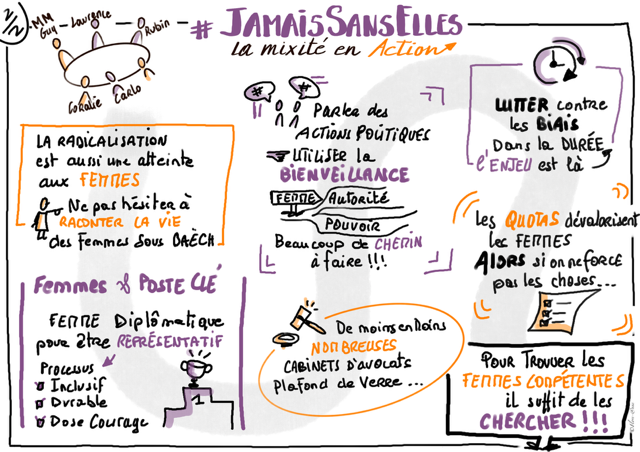 2/2
MM
Guy
Laurence
Rubin
Coralie
Carlo
# JAMAISSANSELLES
La mixité en Action
LA RADICALISATION
est aussi une atteinte
aux FEMMES
Ne pas hésiter à
RACONTER LA VIE
des femmes sous DAECH
Femmes & POSTE CLÉ
FEMME Diplômatique
pour être REPRÉSENTATIF
Processus
Inclusif
Durable
Dose Courage
1
# #
Parler des
ACTIONS POLITIQUES
UTILISER la
BIENVEILLANCE
FEMME Autorité
POUVOIR
Beaucoup de CHEMIN
à faire !!!
De moins en moins
NOMBREUSES
CABINETS D'AVOCATS
Plafond de Verre ...
LUTTER contre
les BIAIS
Dans la DURÉE
L'ENJEU est là
Les QUOTAS dévalorisent
les FEMMES
ALORS si on ne force
pas les choses...
POUR TROUVER les
FEMMES COMPÉTENTES
il suffit de les
CHERCHER !!!